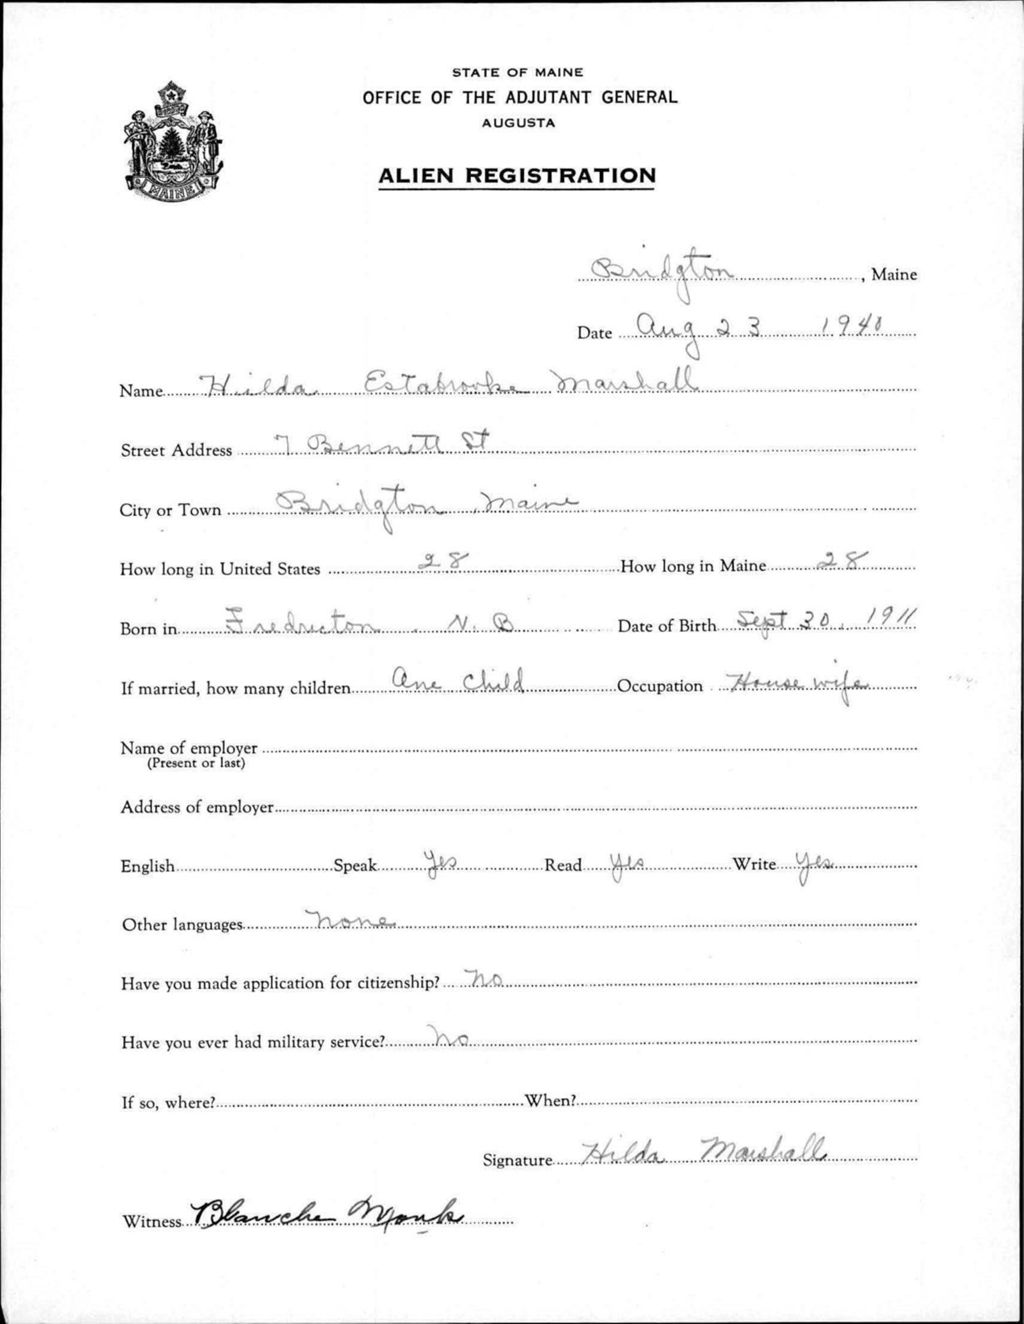 STATE OF MAINE
OFFICE OF THE ADJUTANT GENERAL
AUGUSTA
ALIEN REGISTRATION
MAINE
Bridgton, Maine
Date Aug 23 1940
Name Hilda Estabrooke Marshall
Street Address 7 Bennett St
City or Town Bridgton, Maine
How long in United States 28 How long in Maine 28
Born in Fredricton, N. B Date of Birth Sept 30, 1911
If married, how many children One Child Occupation House wife
Name of employer
(Present or last)
Address of employer
English Speak Yes Read Yes Write Yes
Other languages none
Have you made application for citizenship? no
Have you ever had military service? no
If so, where? When?
Signature Hilda Marshall
Witness Blanche Monk